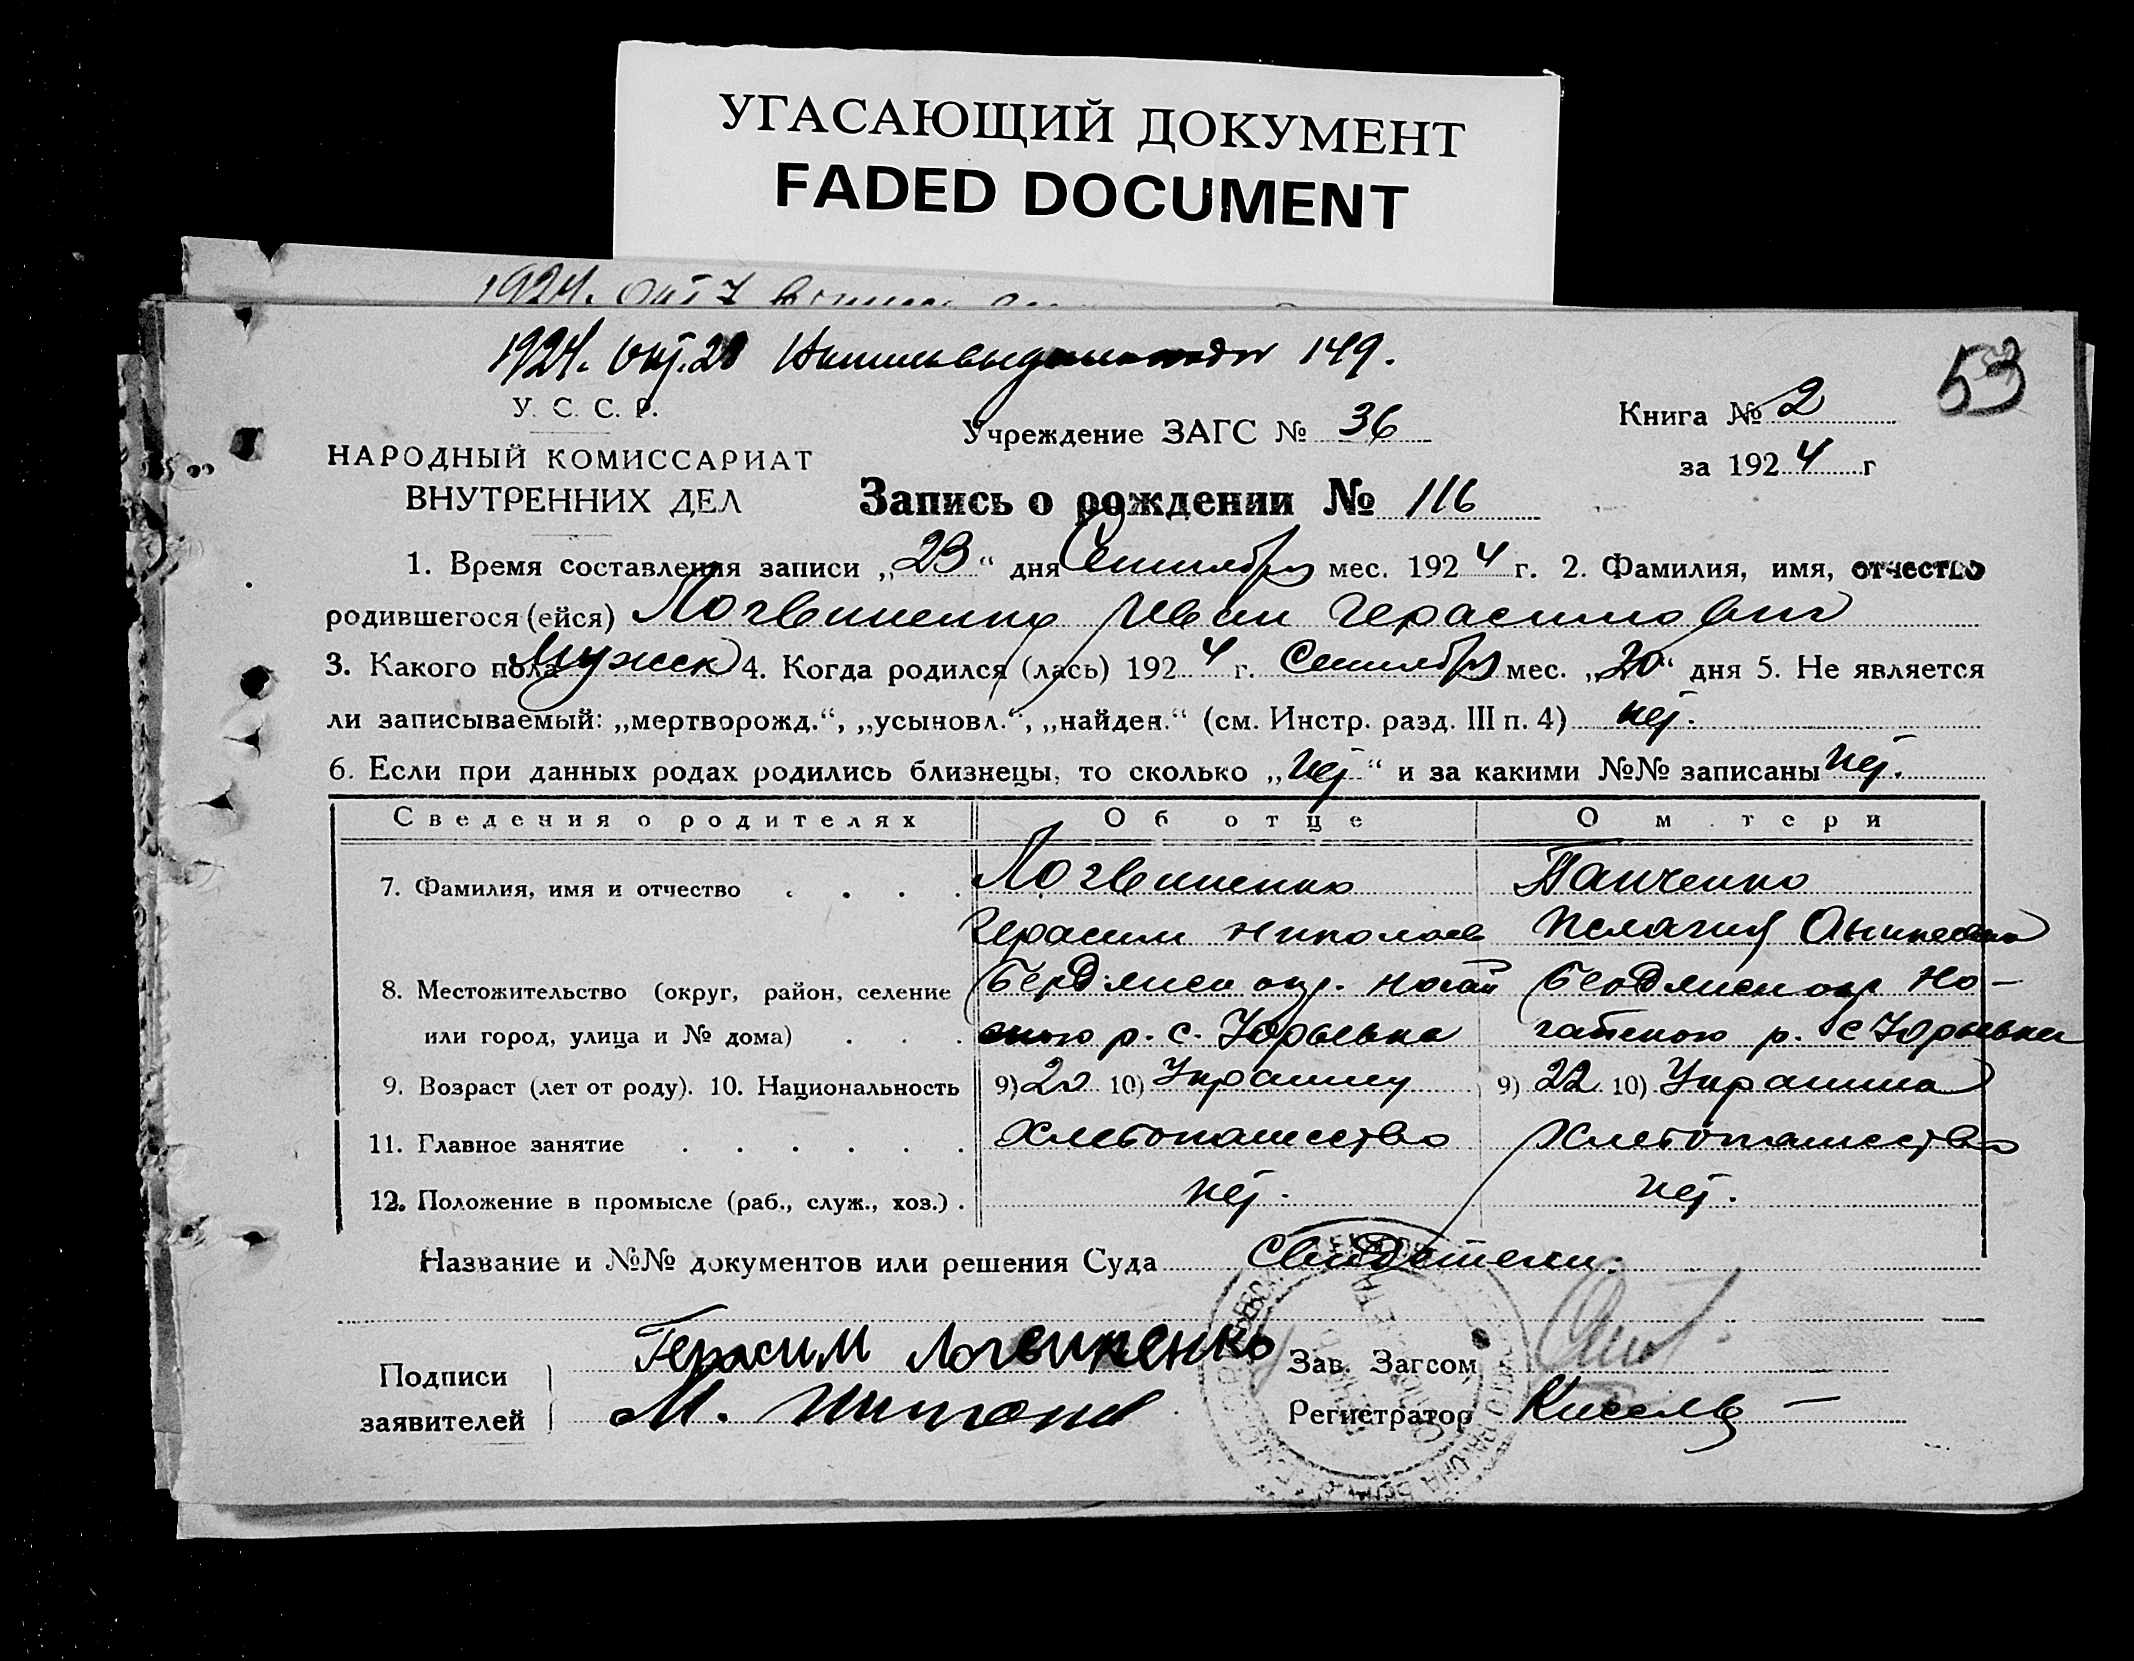 УГАСАЮЩИЙ ДОКУМЕНТ
FADED DOCUMENT
1924. Окт 7
1924. Окт. 28 149.
53
У. С. С. Р.
Учреждение ЗАГС № 36
Книга № 2
НАРОДНЫЙ КОМИССАРИАТ
за 1924 г
ВНУТРЕННИХ ДЕЛ
Запись о рождении № 116
1. Время составления записи „23“ дня Сентября мес. 1924 г. 2. Фамилия, имя, отчество
родившегося (ейся) Логвиненко Иван Герасимович
3. Какого пола Мужск 4. Когда родился (лась) 1924 г. Сентября мес. „20“ дня 5. Не является
ли записываемый: „мертворожд.“, „усыновл.“, „найден.“ (см. Инстр. разд. III п. 4) нет.
6. Если при данных родах родились близнецы, то сколько „нет“ и за какими №№ записаны нет.
Сведения о родителях Об отце О м.тери
7. Фамилия, имя и отчество . . . . Логвиненко Панченко
Герасим Николаев Пелагия
8. Местожительство (округ, район, селение Бердянск окр. Ногай Бердянск окр Но-
или город, улица и № дома) . . . ского р. с. Юрьевка гайского р. с Юрьевка
9. Возраст (лет от роду). 10. Национальность 9) 20 10) Украинц 9) 22 10) Украинка
11. Главное занятие . . . . . . Хлебопашество Хлебопашество
12. Положение в промысле (раб., служ., хоз.) . нет. нет.
Название и №№ документов или решения Суда Свидетели.
Подписи Герасим Логвиненко Зав. Загсом
заявителей М. Регистратор